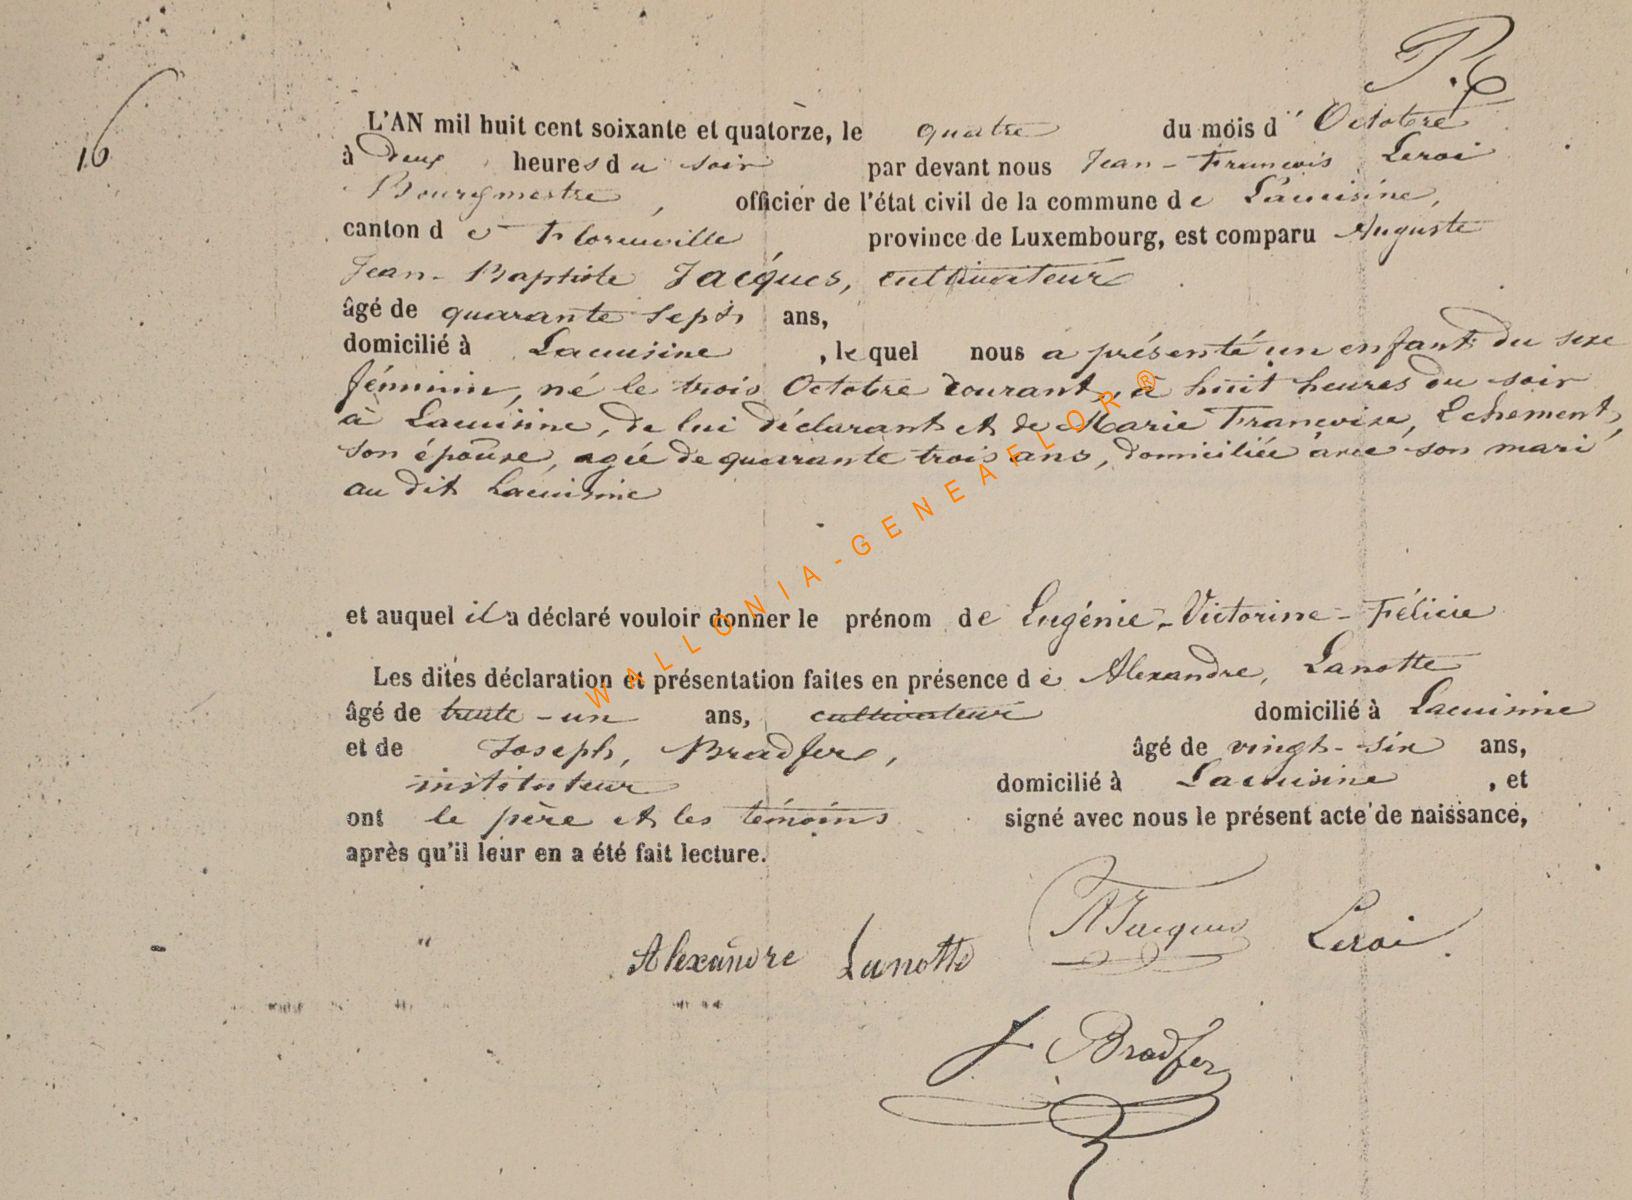 16
L'AN mil huit cent soixante et quatorze, le quatre du mois d'Octobre
à deux heures du soir par devant nous Jean-François Leroi
Bourgmestre, officier de l'état civil de la commune de Lacuisine,
canton de Florenville, province de Luxembourg, est comparu Auguste
Jean-Baptiste Jacques, cultivateur
âgé de quarante sept ans,
domicilié à Lacuisine, lequel nous a présenté un enfant du sexe
féminin, né le trois Octobre courant, à huit heures du soir
à Lacuisine, de lui déclarant et de Marie Françoise, Lehement,
son épouse, agée de quarante trois ans, domiciliée avec son mari
au dit Lacuisine
et auquel il a déclaré vouloir donner le prénom de Eugénie-Victorine-Félicie
Les dites déclaration et présentation faites en présence de Alexandre, Lanotte
âgé de trente-un ans, cultivateur domicilié à Lacuisine
et de Joseph, Bradfer, âgé de vingt-six ans,
instituteur domicilié à Lacuisine, et
ont le père et les témoins signé avec nous le présent acte de naissance,
après qu'il leur en a été fait lecture.
AJacques Leroi.
Alexandre Lanotte
J Bradfer
WALLONIA-GENEAFLOR®